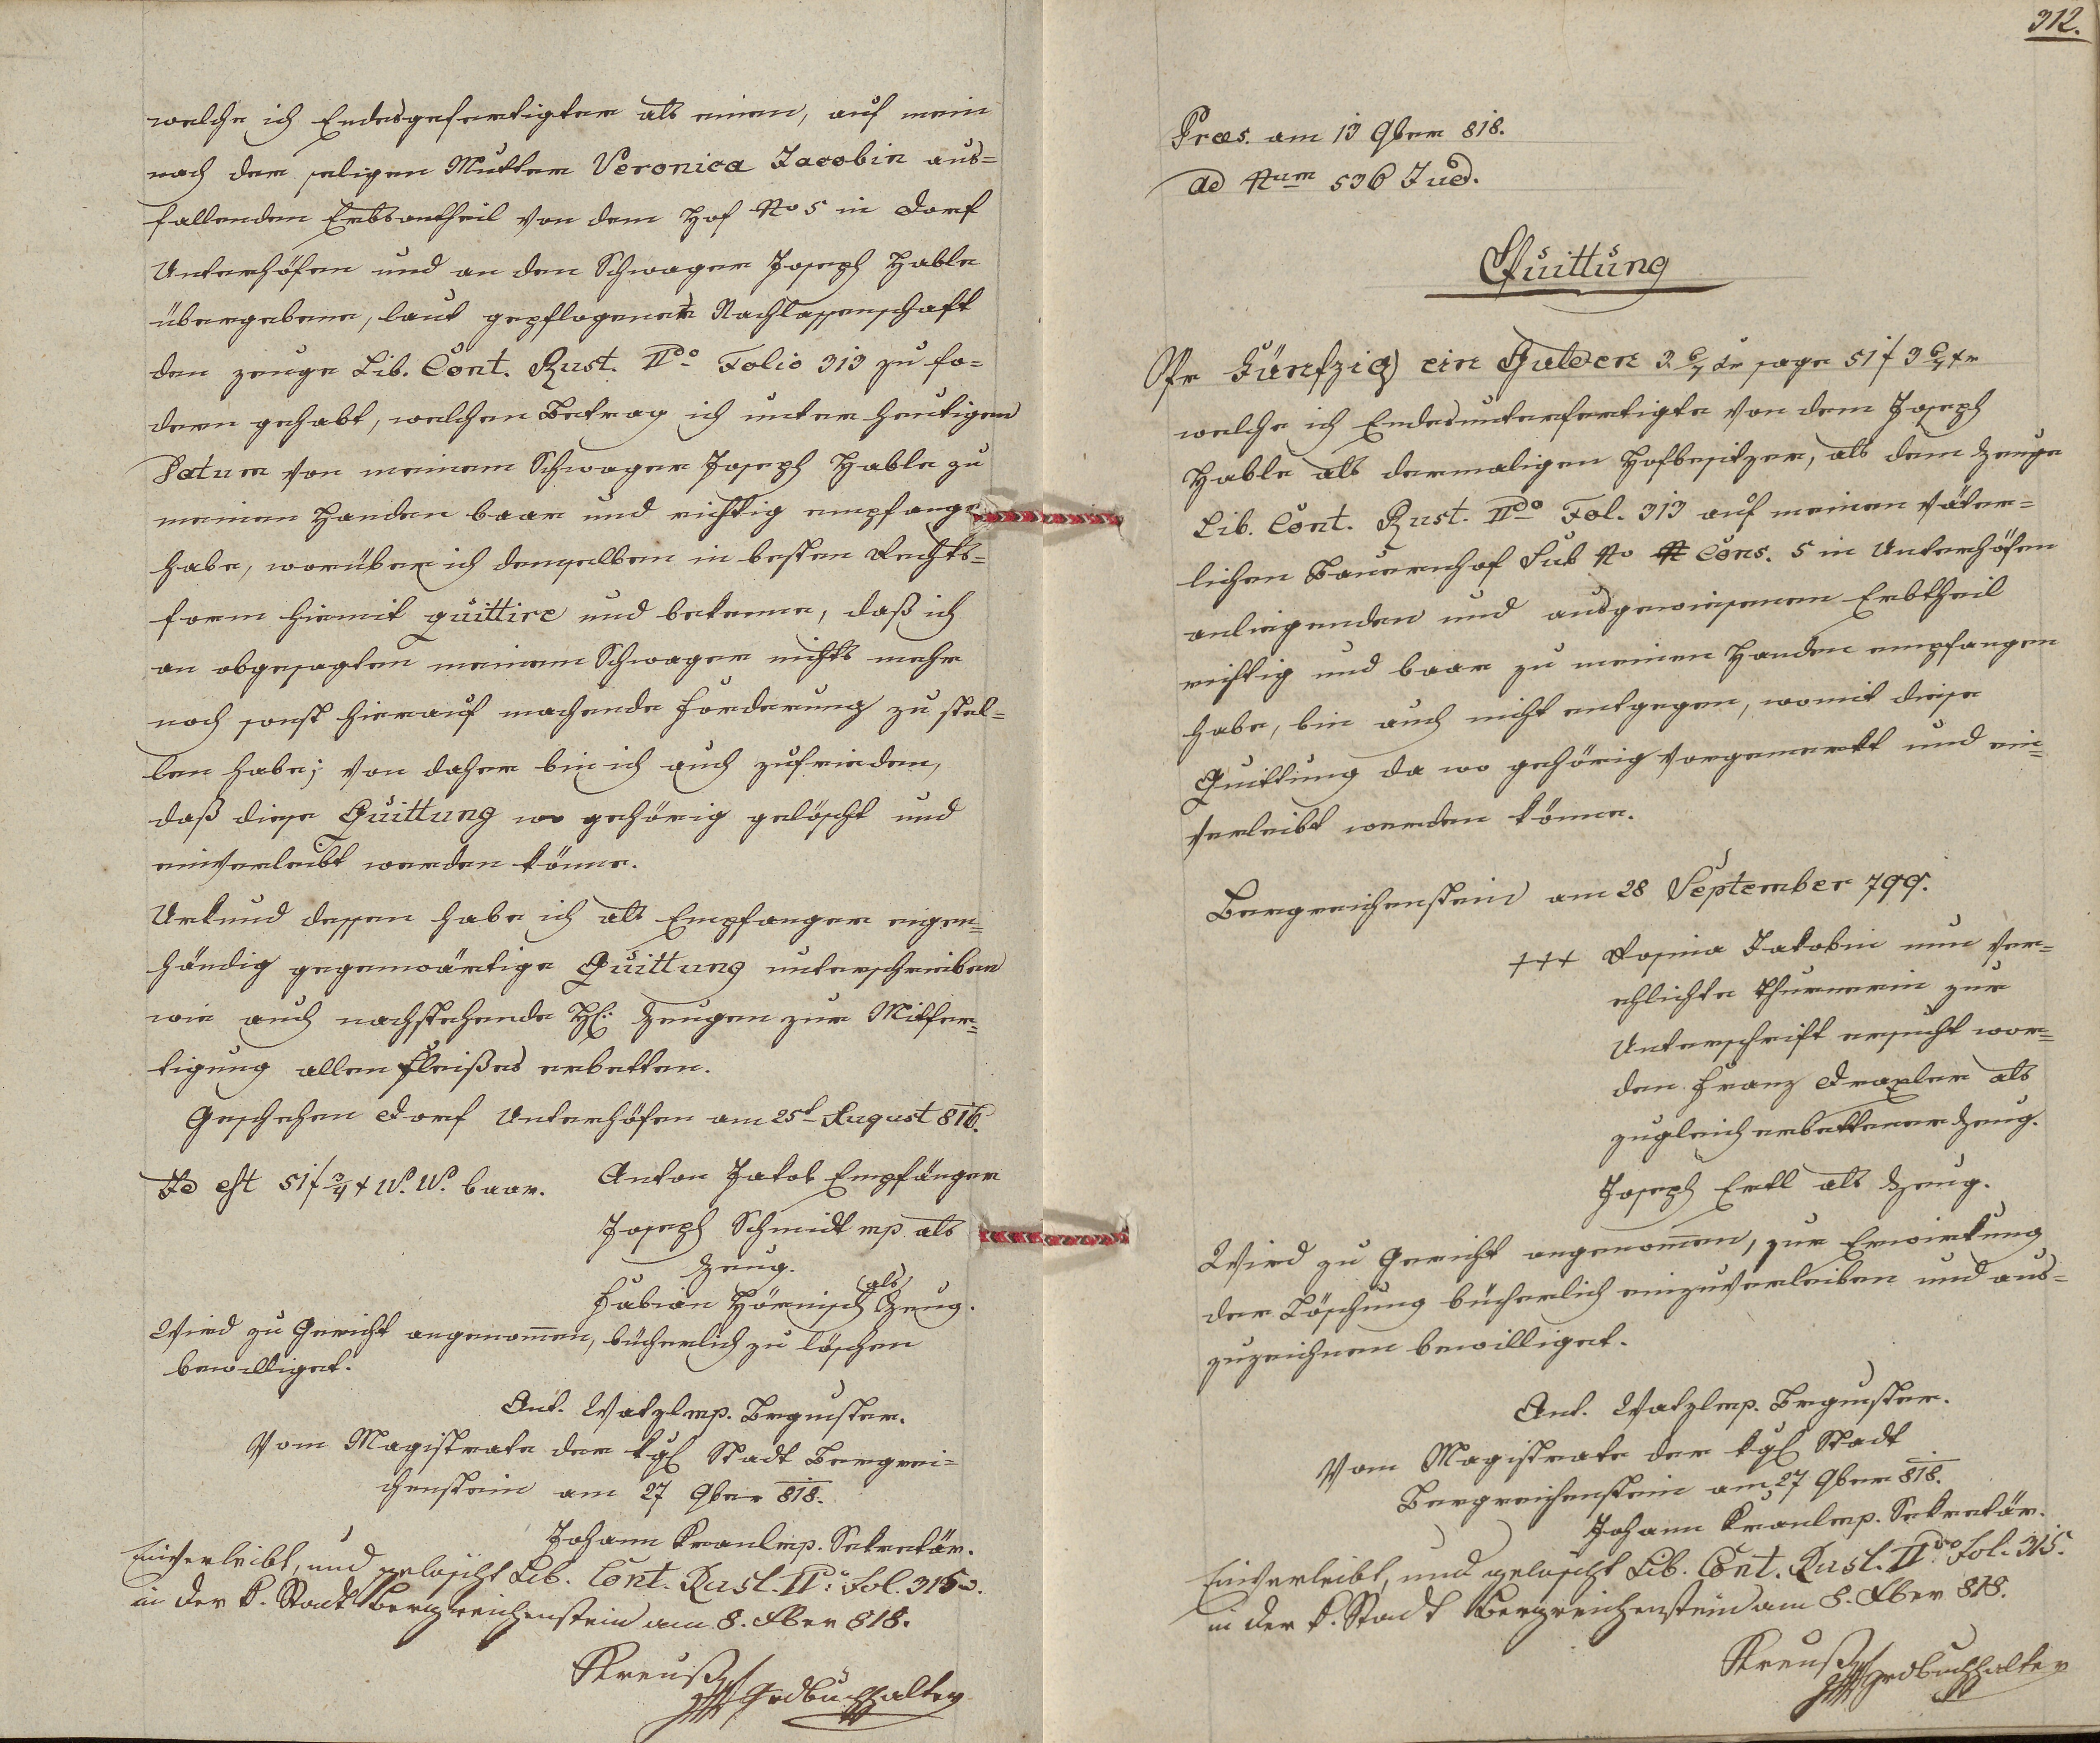 welche ich Endesgefertigter als einen, auf mein
nach der seligen Mutter Veronica Jacobin aus=
fallenden Erbsantheil von dem Hof No 5 in Dorf
Unterhöfen und an den Schwager Joseph Hable
übergebene, laut gepflogener Nachlassenschaft
den zeuge Lib. Cont. Rust. IIdo Folio 313 zu fo=
dern gehabt, welchen Betrag ich unter heutigem
Datum von meinem Schwager Joseph Hable zu
meinen Handen baar und richtig empfange
habe, worüber ich demselben in besten Rechts=
form hiemit quittire und bekenne, daß ich
an obgesagten meinem Schwager nichts mehr
noch sonst hierauf machende Forderung zu stel=
len habe; von daher bin ich auch zufrieden,
daß diese Quittung wo gehörig gelöscht und
einverleibt werden könne.
Urkund dessen habe ich als Empfanger eigen=
händig gegenwärtige Quittung unterschrieben
wie auch nachstehende H: Zeugen zur Mitfer=
tigung allen Fleißes erbetten.
Geschehen Dorf Unterhöfen am 25t August 816.
Id est 51 f 3/4 x W. W. baar. Anton Jakob Empfänger
Joseph Schmidt mp als
Zeug.
Fabian Hörnisch als Zeug.
Wird zu Gericht angenom̄en, bücherlich zu löschen
bewilliget.
Ant. Watzl mp. Brgmster.
Vom Magistrate der kgl Stadt Bergrei=
chenstein am 27 9ber 818.
Johann Kranl mp. Sekretär.
Einverleibt, und gelöscht Lib. Cont. Rust. IIdo Fol. 315.
in der k. Stadt Bergreichenstein am 8. Xber 818.
Kreuß Grdbuchhalter
312.
Præs. am 13 9ber 818.
ad Num 536 Jud.
Quittung
Pr Fünfzig ein Gulden 3 6/4 xr sage 51 f 3 6/4 xr
welche ich Endesunterfertigte von dem Joseph
Hable als dermaligen Hofbesitzer, als dem zeuge
Lib. Cont. Rust. IIdo Fol. 313 auf meinen väter=
lichen Bauernhof Sub No Cons. 5 in Unterhöfen
anliegenden und ausgewiesenen Erbtheil
richtig und baar zu meinen Handen empfangen
habe, bin auch nicht entgegen, womit diese
Quittung da wo gehörig vorgemerkt und ein=
verleibt werden könne.
Bergreichenstein am 28 September 799.
+++ Rosina Jakobin nun ver=
ehlichte Thurnerin zur
Unterschrift ersucht wor=
den Franz Draxler als
zugleich erbettener Zeug.
Joseph Ertl als Zeug.
Wird zu Gericht angenom̄en, zur Erwirkung
der Löschung bücherlich einzuverleiben und aus=
zuzeichnen bewilliget.
Ant. Watzl mp. Brgmster.
Vom Magistrate der kgl Stadt
Bergreichenstein am 27 9ber 818.
Johann Kranl mp. Sekretär.
Einverleibt, und gelöscht Lib. Cont. Rust. IIdo Fol. 315.
in der k. Stadt Bergreichenstein am 8. Xber 818.
Kreuß Grdbuchhalter